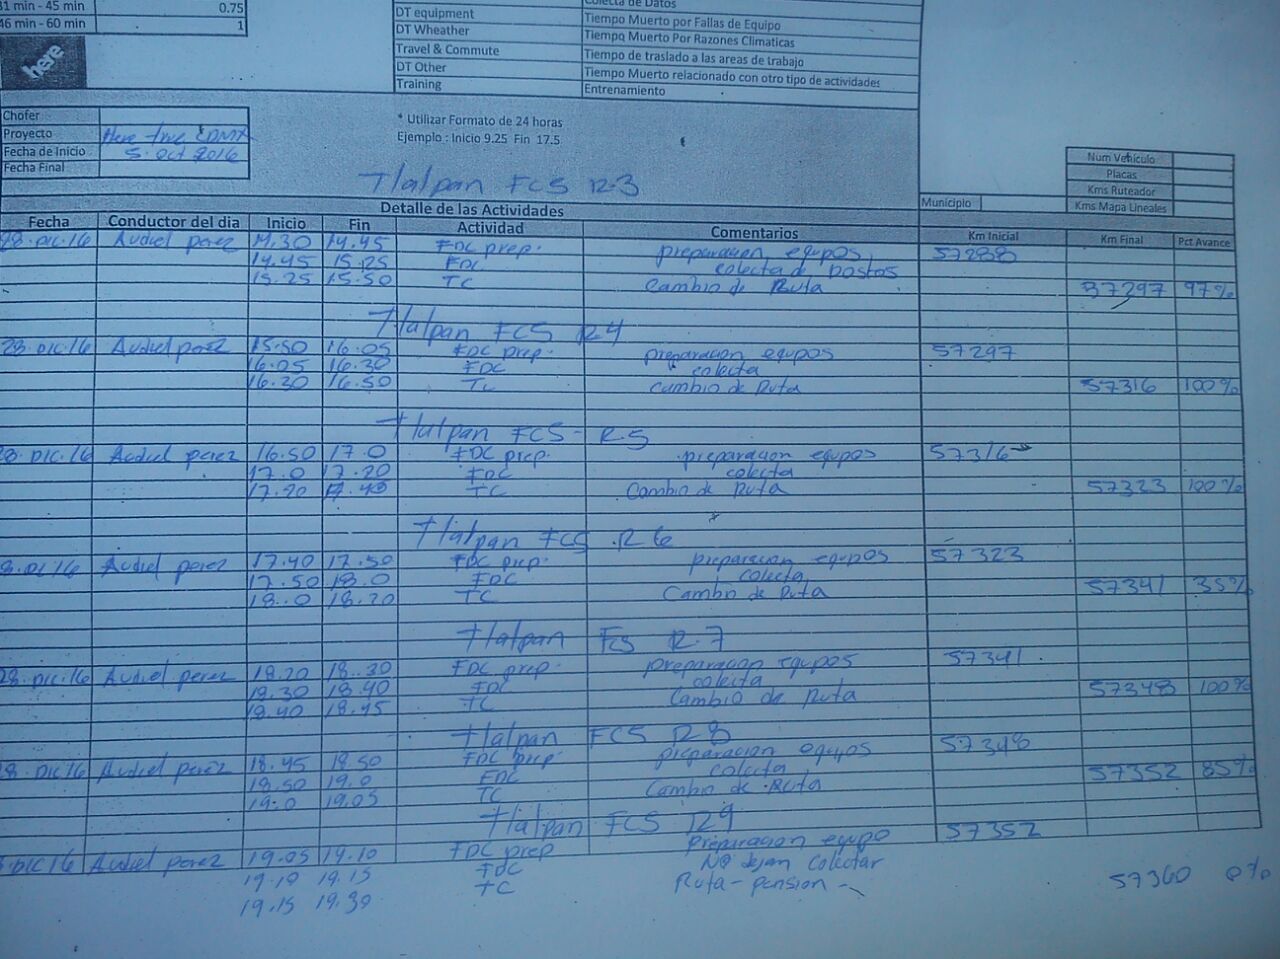 31 min - 45 min 0.75
46 min - 60 min 1
here
Colecta de Datos
DT equipment Tiempo Muerto por Fallas de Equipo
DT Wheather Tiempo Muerto Por Razones Climaticas
Travel & Commute Tiempo de traslado a las areas de trabajo
DT Other Tiempo Muerto relacionado con otro tipo de actividades
Training Entrenamiento
Chofer
Proyecto Here true CDMX
Fecha de Inicio 5. Oct 2016
Fecha Final
* Utilizar Formato de 24 horas
Ejemplo : Inicio 9.25 Fin 17.5
Num Vehiculo
Placas
Kms Ruteador
Kms Mapa Lineales
Tlalpan FCS R-3
Detalle de las Actividades Municipio
Fecha Conductor del dia Inicio Fin Actividad Comentarios Km Inicial Km Final Pct Avance
28.Dic.16 Audiel perez 14.45 FDC prep. preparacion equipos 57288
14.45 15.25 FDC colecta de
15.25 15.50 TC Cambio de Ruta 57297 97%
Tlalpan FCS R4
28.Dic.16 Audiel perez 15.50 16.05 FDC prep. preparacion equipos 57297
16.05 16.30 FDC colecta
16.30 16.50 TC Cambio de Ruta 57316 100%
Tlalpan FCS - R5
28.Dic.16 Audiel perez 16.50 17.0 FDC prep. preparacion equipos 57316
17.0 17.20 FDC colecta
17.20 17.40 TC Cambio de Ruta 57323 100%
Tlalpan FCS R6
8.Dic 16 Audiel perez 17.40 17.50 FDC prep. preparacion equipos 57323
17.50 18.0 FDC colecta
18.0 18.20 TC Cambio de Ruta 57341 35%
Tlalpan FCS R-7
28.Dic.16 Audiel perez 18.20 18.30 FDC prep. preparacion equipos 57341
18.30 18.40 FDC colecta
18.40 18.45 TC Cambio de Ruta 57348 100%
Tlalpan FCS R8
8.Dic 16 Audiel perez 18.45 18.50 FDC prep preparacion equipos 57348
18.50 19.0 FDC colecta 57352 85%
19.0 19.05 TC Cambio de Ruta
Tlalpan FCS R9
Dic 16 Audiel perez 19.05 19.10 FDC prep Preparacion equipo 57352
19.10 19.15 FDC No dejan Colectar
19.15 19.30 TC Ruta - pension 57360 0%